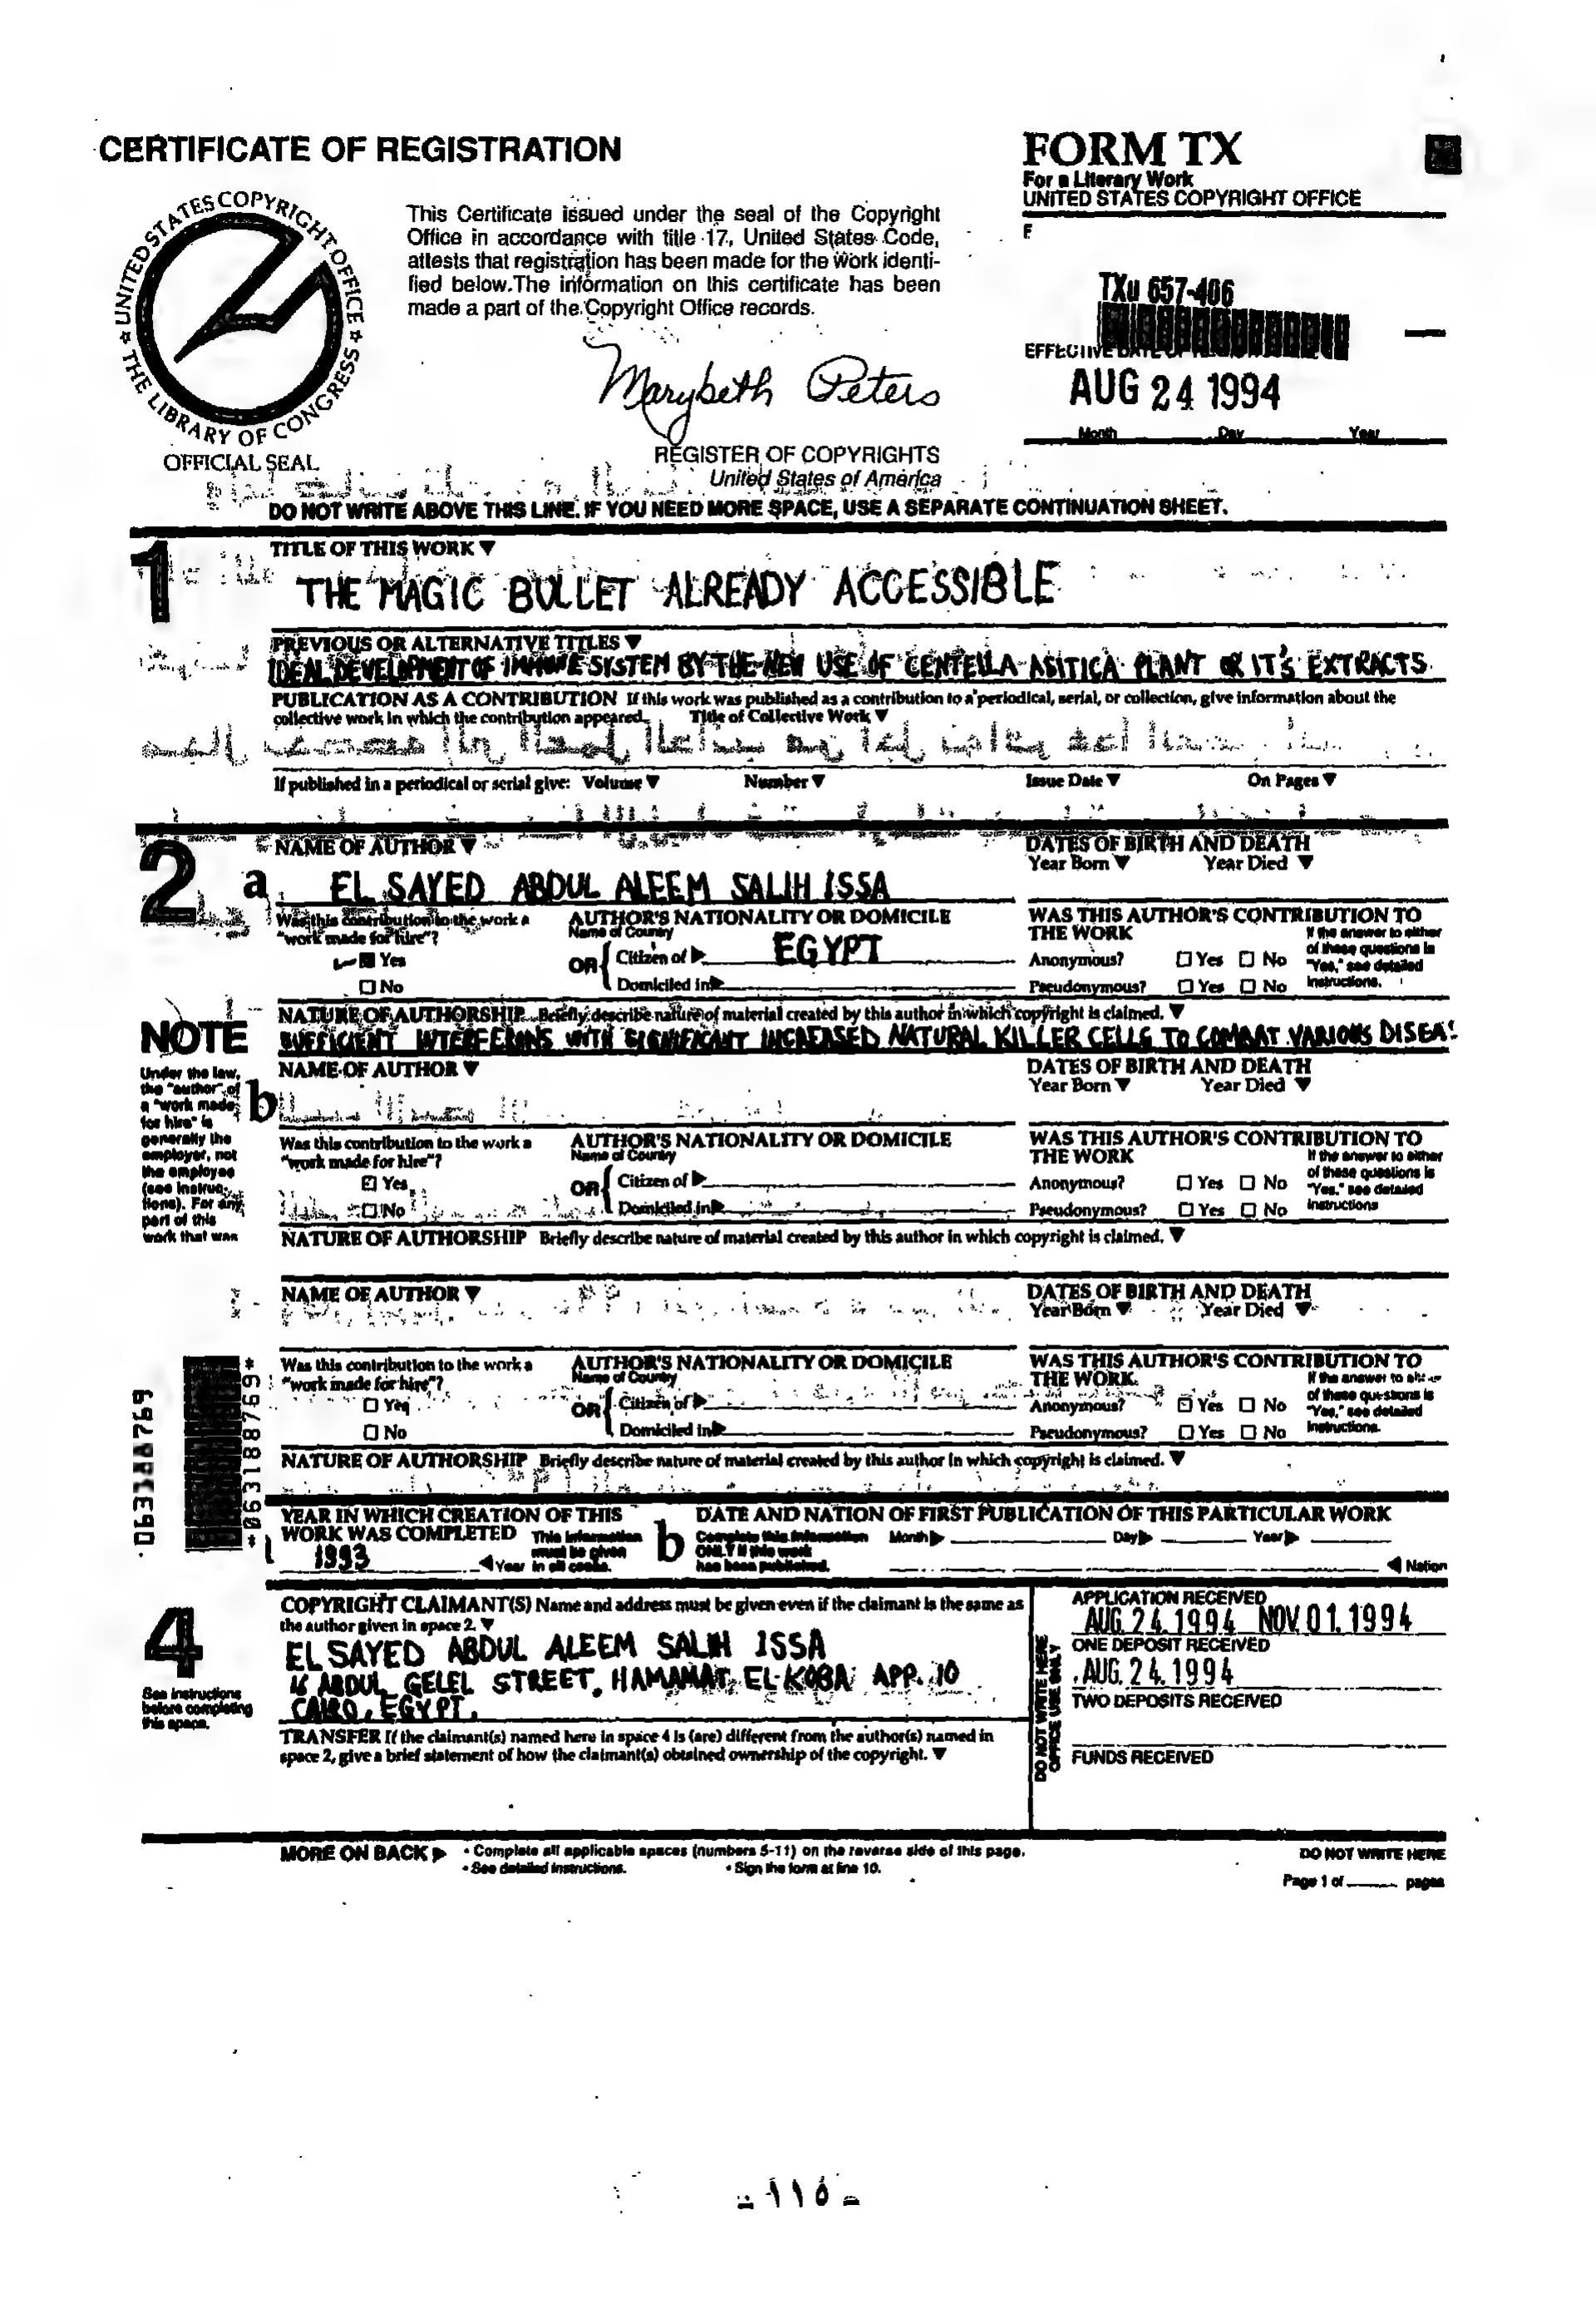 CERTIFICATE OF REGISTRATION
FORM TX
For a Literary Work
UNITED STATES COPYRIGHT OFFICE
UNITED STATES COPYRIGHT OFFICE
THE LIBRARY OF CONGRESS
OFFICIAL SEAL
This Certificate issued under the seal of the Copyright
Office in accordance with title 17, United States Code,
attests that registration has been made for the work identi-
fied below. The information on this certificate has been
made a part of the Copyright Office records.
Marybeth Peters
REGISTER OF COPYRIGHTS
United States of America
TXu 657-406
EFFECTIVE DATE OF
AUG 24 1994
Month Day Year
DO NOT WRITE ABOVE THIS LINE. IF YOU NEED MORE SPACE, USE A SEPARATE CONTINUATION SHEET.
1
TITLE OF THIS WORK ▼
THE MAGIC BULLET ALREADY ACCESSIBLE
PREVIOUS OR ALTERNATIVE TITLES ▼
IDEAL DEVELOPMENT OF IMMUNE SYSTEM BY THE NEW USE OF CENTELLA ASITICA PLANT OR IT'S EXTRACTS
PUBLICATION AS A CONTRIBUTION If this work was published as a contribution to a periodical, serial, or collection, give information about the
collective work in which the contribution appeared. Title of Collective Work ▼
If published in a periodical or serial give: Volume ▼ Number ▼ Issue Date ▼ On Pages ▼
2
NAME OF AUTHOR ▼
DATES OF BIRTH AND DEATH
Year Born ▼ Year Died ▼
a EL SAYED ABDUL ALEEM SALIH ISSA
Was this contribution to the work a
"work made for hire"?
Yes
No
AUTHOR'S NATIONALITY OR DOMICILE
Name of Country
OR Citizen of ▶ EGYPT
Domiciled in ▶
WAS THIS AUTHOR'S CONTRIBUTION TO
THE WORK
Anonymous? Yes No
Pseudonymous? Yes No
If the answer to either
of these questions is
"Yes," see detailed
instructions.
NATURE OF AUTHORSHIP Briefly describe nature of material created by this author in which copyright is claimed. ▼
SUFFICIENT INTERFERONS WITH SIGNIFICANT INCREASED NATURAL KILLER CELLS TO COMBAT VARIOUS DISEA
NOTE
Under the law,
the "author" of
a "work made
for hire" is
generally the
employer, not
the employee
(see instruc-
tions). For any
part of this
work that was
b
NAME OF AUTHOR ▼
DATES OF BIRTH AND DEATH
Year Born ▼ Year Died ▼
Was this contribution to the work a
"work made for hire"?
Yes
No
AUTHOR'S NATIONALITY OR DOMICILE
Name of Country
OR Citizen of ▶
Domiciled in ▶
WAS THIS AUTHOR'S CONTRIBUTION TO
THE WORK
Anonymous? Yes No
Pseudonymous? Yes No
If the answer to either
of these questions is
"Yes," see detailed
instructions
NATURE OF AUTHORSHIP Briefly describe nature of material created by this author in which copyright is claimed. ▼
NAME OF AUTHOR ▼
DATES OF BIRTH AND DEATH
Year Born ▼ Year Died ▼
Was this contribution to the work a
"work made for hire"?
Yes
No
AUTHOR'S NATIONALITY OR DOMICILE
Name of Country
OR Citizen of ▶
Domiciled in ▶
WAS THIS AUTHOR'S CONTRIBUTION TO
THE WORK
Anonymous? Yes No
Pseudonymous? Yes No
of these questions is
"Yes," see detailed
instructions.
NATURE OF AUTHORSHIP Briefly describe nature of material created by this author in which copyright is claimed. ▼
*063188769*
YEAR IN WHICH CREATION OF THIS
WORK WAS COMPLETED This information
must be given
1993 ◀ Year in all cases.
b
DATE AND NATION OF FIRST PUBLICATION OF THIS PARTICULAR WORK
Complete this information
ONLY if this work
has been published.
Month ▶ Day ▶ Year ▶
◀ Nation
4
See instructions
before completing
this space.
COPYRIGHT CLAIMANT(S) Name and address must be given even if the claimant is the same as
the author given in space 2. ▼
EL SAYED ABDUL ALEEM SALIH ISSA
16 ABDUL GELEL STREET, HAMAMAT, EL-KOBA APP. 10
CAIRO, EGYPT.
TRANSFER If the claimant(s) named here in space 4 is (are) different from the author(s) named in
space 2, give a brief statement of how the claimant(s) obtained ownership of the copyright. ▼
DO NOT WRITE HERE
OFFICE USE ONLY
APPLICATION RECEIVED
AUG. 24. 1994 NOV. 01. 1994
ONE DEPOSIT RECEIVED
AUG. 24. 1994
TWO DEPOSITS RECEIVED
FUNDS RECEIVED
MORE ON BACK ▶ • Complete all applicable spaces (numbers 5-11) on the reverse side of this page.
• See detailed instructions. • Sign the form at line 10.
DO NOT WRITE HERE
Page 1 of pages
- ١١٥ -